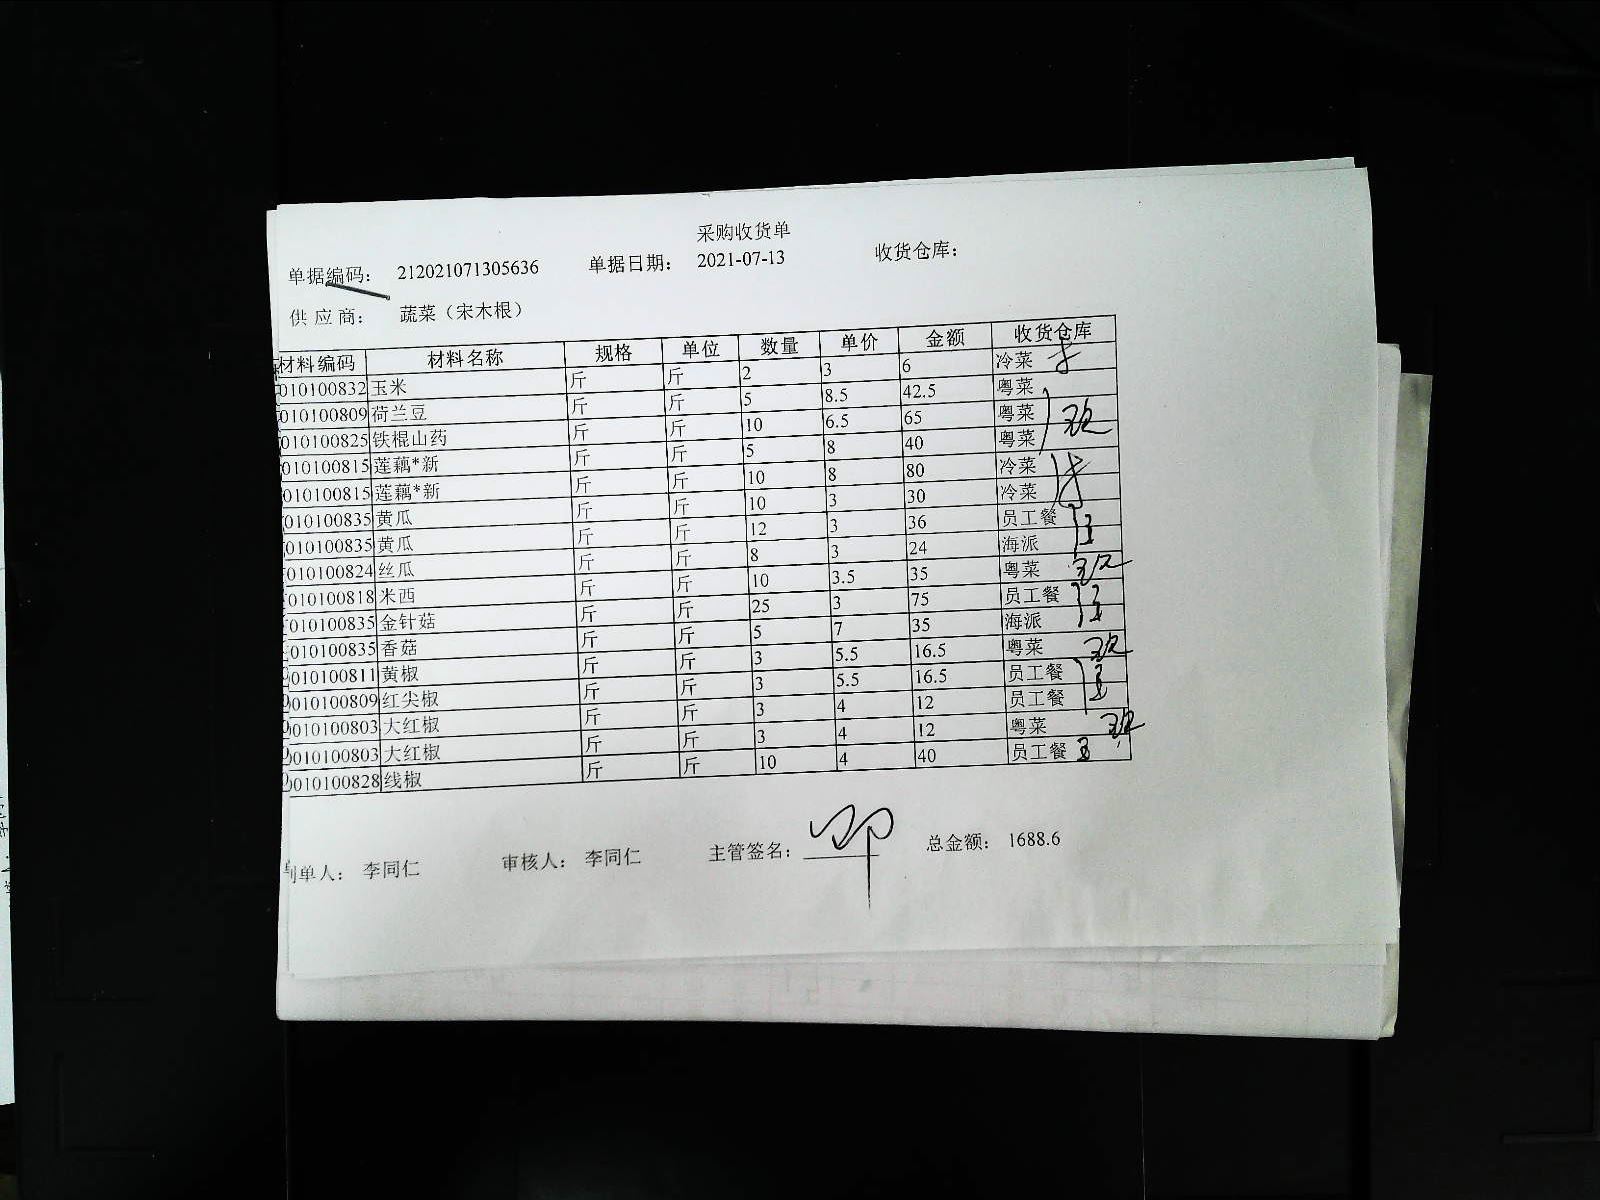 采购收货单
单据编码： 212021071305636 单据日期： 2021-07-13 收货仓库：
供应商： 蔬菜（宋木根）
材料编码 材料名称 规格 单位 数量 单价 金额 收货仓库
010100832 玉米 斤 斤 2 3 6 冷菜
010100809 荷兰豆 斤 斤 5 8.5 42.5 粤菜
010100825 铁棍山药 斤 斤 10 6.5 65 粤菜
010100815 莲藕*新 斤 斤 5 8 40 粤菜
010100815 莲藕*新 斤 斤 10 8 80 冷菜
010100835 黄瓜 斤 斤 10 3 30 冷菜
010100835 黄瓜 斤 斤 12 3 36 员工餐
010100824 丝瓜 斤 斤 8 3 24 海派
010100818 米西 斤 斤 10 3.5 35 粤菜
010100835 金针菇 斤 斤 25 3 75 员工餐
010100835 香菇 斤 斤 5 7 35 海派
010100811 黄椒 斤 斤 3 5.5 16.5 粤菜
010100809 红尖椒 斤 斤 3 5.5 16.5 员工餐
010100803 大红椒 斤 斤 3 4 12 员工餐
010100803 大红椒 斤 斤 3 4 12 粤菜
010100828 线椒 斤 斤 10 4 40 员工餐
制单人： 李同仁 审核人： 李同仁 主管签名： 总金额： 1688.6